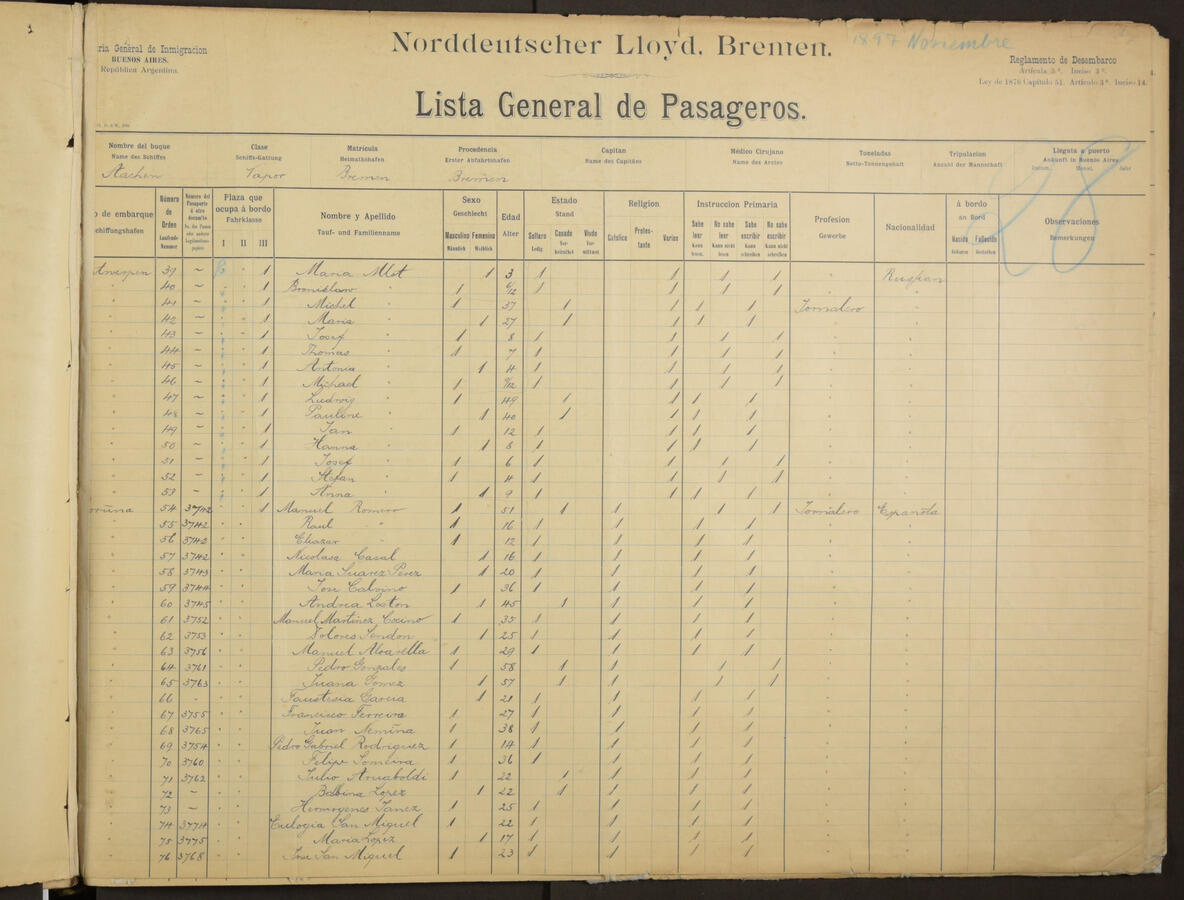 ria General de Inmigracion
BUENOS AIRES.
República Argentina.
Norddeutscher Lloyd, Bremen.
1897 Noviembre
Reglamento de Desembarco
Artícula 5º. Inciso 3º.
Ley de 1876 Capítulo 51. Artículo 3º. Inciso 14.
Lista General de Pasageros.
Nombre del buque Clase Matrícula Procedencia Capitan Médico Cirujano Toneladas Tripulacion Llegata a puerto
Name des Schiffes Schiffs-Gattung Heimathshafen Erster Abfahrtshafen Name des Capitäns Name des Arztes Netto-Tonnengehalt Anzahl der Mannschaft Ankunft in Buenos Aires
Datum. Monat. Jahr
Aachen Vapor Bremen Bremen
28
o de embarque Número de Orden Plaza que ocupa á bordo Nombre y Apellido Sexo Edad Estado Religion Instruccion Primaria Profesion Nacionalidad á bordo Observaciones
chiffungshafen Laufende Nummer Fahrklasse Tauf- und Familienname Geschlecht Alter Stand Gewerbe an Bord Bemerkungen
I II III Masculino Femenino Soltero Casado Viudo Católica Protestante Varios Sabe leer No sabe leer Sabe escribir No sabe escribir Nacido Fallecido
Männlich Weiblich Ledig Verheirathet Verwittwet Kann lesen Kann nicht lesen Kann schreiben Kann nicht schreiben
ntwerpen 39 ~ 1 Maria Mlot 1 3 1 1 1 1 Russian
" 40 ~ 1 Bronislaw " 1 6/12 1 1 1 1
" 41 ~ 1 Michel " 1 37 1 1 1 1 Jornalero
" 42 ~ 1 Maria " 1 27 1 1 1 1
" 43 ~ 1 Josef " 1 8 1 1 1 1
" 44 ~ 1 Thomas " 1 7 1 1 1 1
" 45 ~ 1 Antonia " 1 4 1 1 1 1
" 46 ~ 1 Michael " 1 1 1 1 1
" 47 ~ 1 Ludwig " 1 49 1 1 1 1
" 48 ~ 1 Pauline " 1 40 1 1 1 1
" 49 ~ 1 Jan " 1 12 1 1 1 1
" 50 ~ 1 Hanna " 1 8 1 1 1 1
" 51 ~ 1 Josef " 1 6 1 1 1 1
" 52 ~ 1 Stefan " 1 4 1 1 1 1
" 53 ~ 1 Anna " 1 9 1 1 1 1
oruña 54 3742 1 Manuel Romero 1 51 1 1 1 1 Jornalero Española
" 55 3742 Raul " 1 16 1 1 1 1
" 56 3742 Eliazar " 1 12 1 1 1 1
" 57 3742 Nicolasa Casal 1 16 1 1 1 1
" 58 3743 Maria Suarez Perez 1 20 1 1 1 1
" 59 3744 Jose Calvino 1 36 1 1 1 1
" 60 3745 Andrea Loston 1 45 1 1 1 1
" 61 3752 Manuel Martinez Cocino 1 35 1 1 1 1
" 62 3753 Dolores Sendon 1 25 1 1 1 1
" 63 3756 Manuel Alvarella 1 29 1 1 1 1
" 64 3761 Pedro Gonzales 1 58 1 1 1 1
" 65 3763 Juana Gomez 1 57 1 1 1 1
" 66 Garcia 1 21 1 1 1 1
" 67 3755 Francisco Ferreira 1 27 1 1 1 1
" 68 3765 Juan Nemina 1 38 1 1 1 1
" 69 3754 Pedro Gabriel Rodriguez 1 14 1 1 1 1
" 70 3760 Felipe Someira 1 36 1 1 1 1
" 71 3762 Julio Arnaboldi 1 22 1 1 1 1
" 72 ~ Balbina Lopez 1 22 1 1 1 1
" 73 ~ Hermogenes Janez 1 25 1 1 1 1
" 74 3774 Eulogia San Miguel 1 22 1 1 1 1
" 75 3775 Maria Lopez 1 17 1 1 1 1
" 76 3768 Jose San Miguel 1 23 1 1 1 1